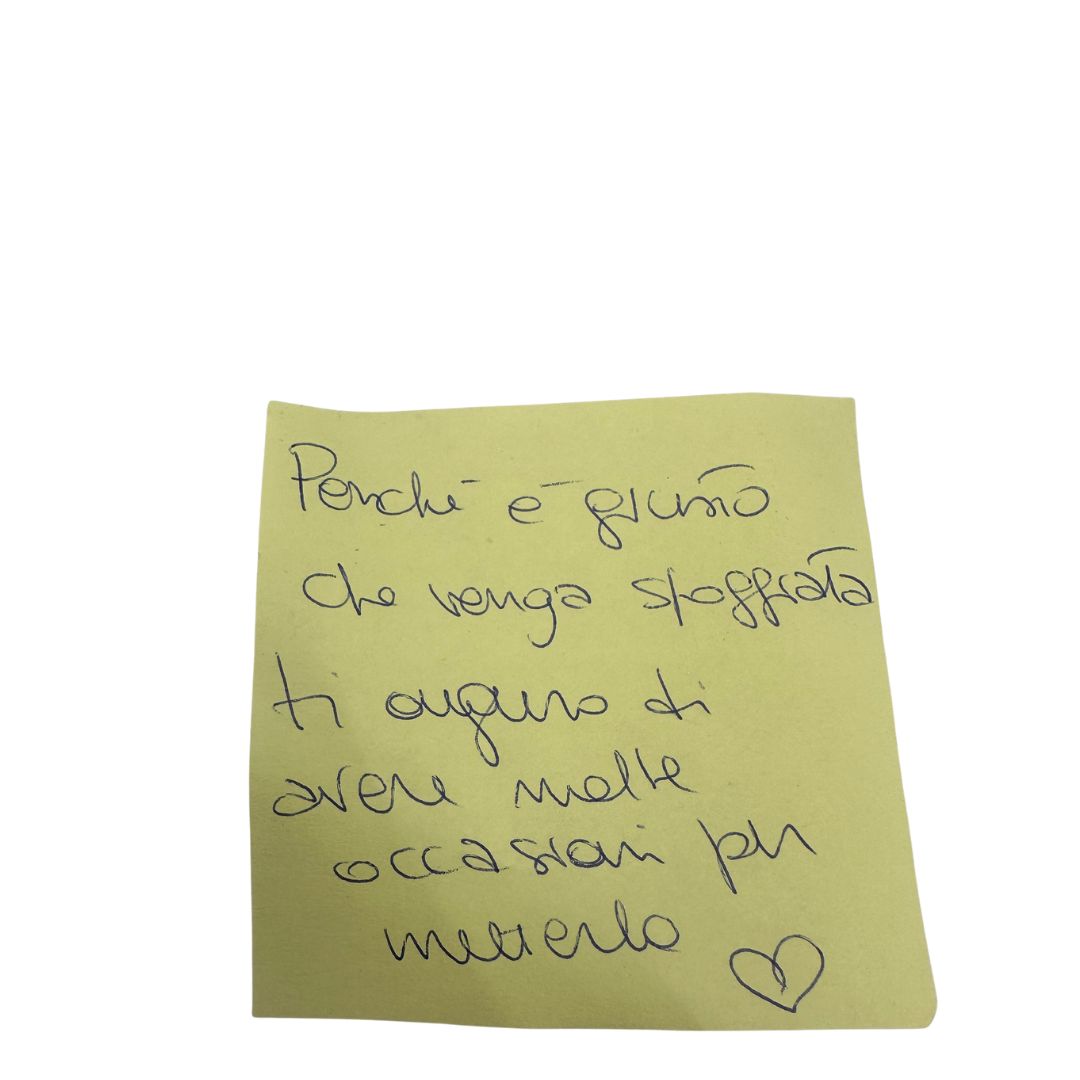 Perché è giusto
che venga sfoggiata
ti auguro di
avere molte
occasioni per
metterlo